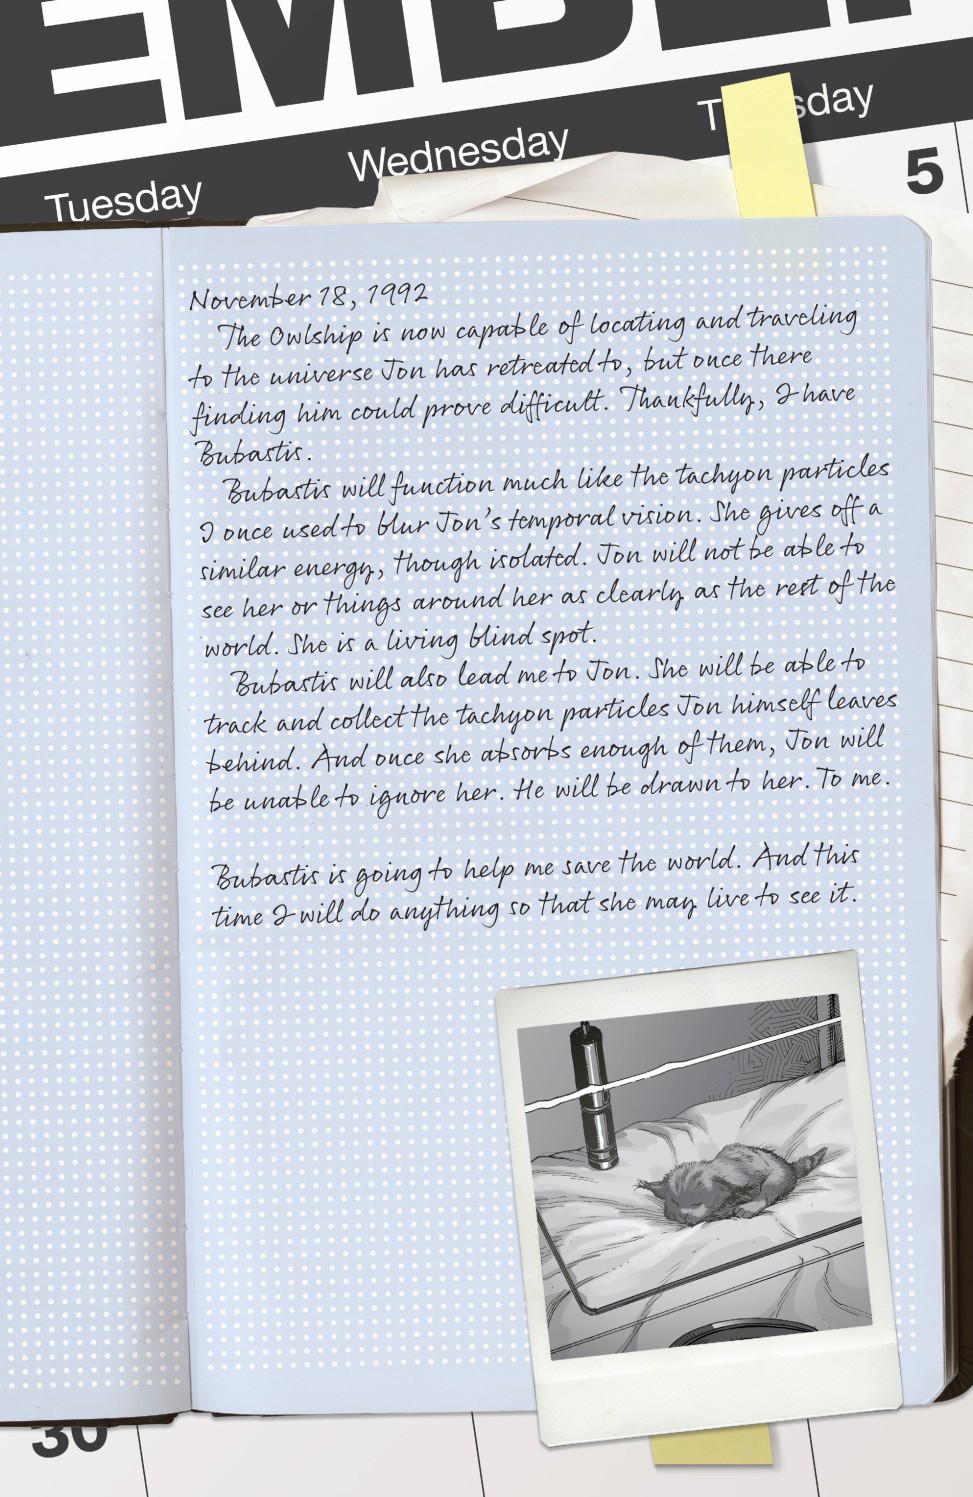 EMBER
Tuesday
Wednesday
T sday
5
November 18, 1992
The Owlship is now capable of locating and traveling
to the universe Jon has retreated to, but once there
finding him could prove difficult. Thankfully, I have
Bubastis.
Bubastis will function much like the tachyon particles
I once used to blur Jon's temporal vision. She gives off a
similar energy, though isolated. Jon will not be able to
see her or things around her as clearly as the rest of the
world. She is a living blind spot.
Bubastis will also lead me to Jon. She will be able to
track and collect the tachyon particles Jon himself leaves
behind. And once she absorbs enough of them, Jon will
be unable to ignore her. He will be drawn to her. To me.
Bubastis is going to help me save the world. And this
time I will do anything so that she may live to see it.
30